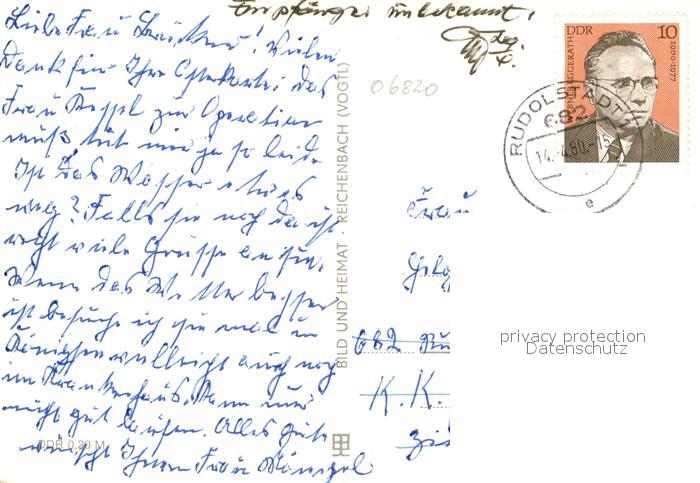 Empfänger unbekannt.
Liebe Frau! Vielen
Dank für Ihre Osterkarte; das
Frau zur Operation
muß tut mir ja so leid.
Ist das Wasser etwas
weg? Falls sie noch da ist
recht viele Grüsse an sie.
Wenn das Wetter besser
ist besuche ich sie mal in
vielleicht auch noch
im Krankenhaus. Kann nur
nicht gut laufen. Alles Gute
wünscht Ihnen Frau
DDR 0,20 M
BILD UND HEIMAT · REICHENBACH (VOGTL)
06820
DDR 10
EGGERATH 1900-1977
RUDOLSTADT 1
682
14.-4.80.-15
e
Frau
Helg
682 Ru
K.K.
Zi
privacy protection
Datenschutz